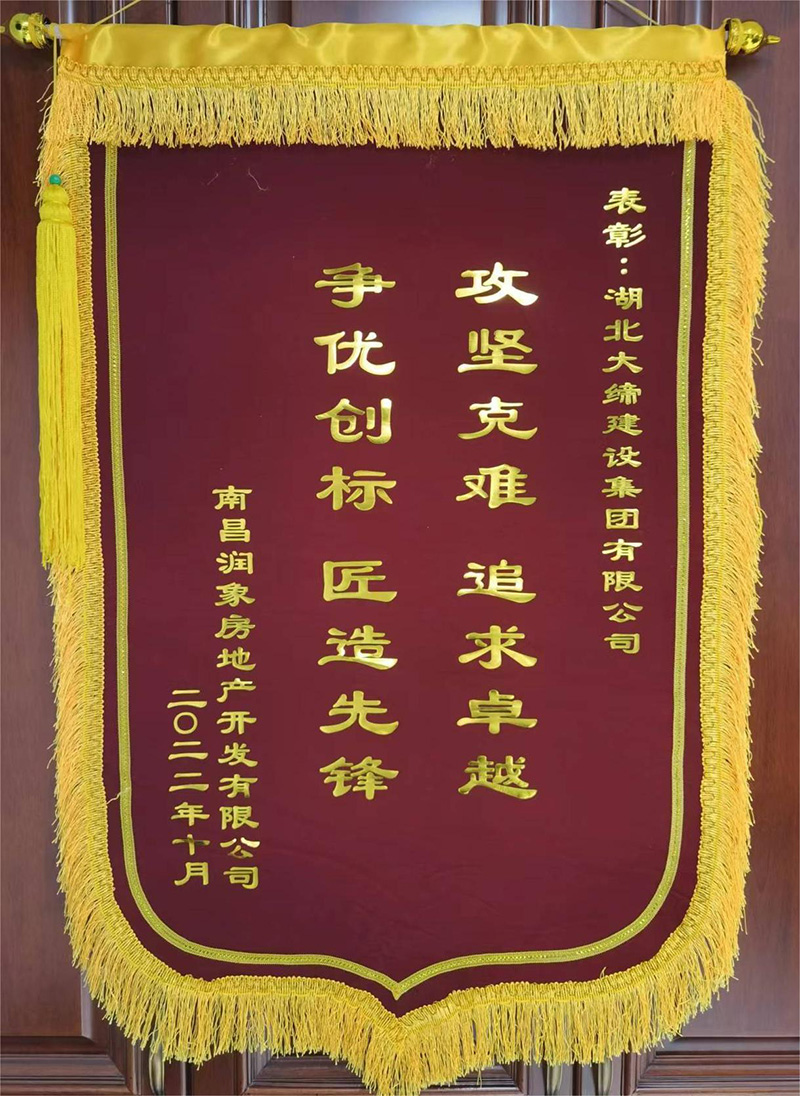 表彰：湖北大缔建设集团有限公司
攻坚克难 追求卓越
争优创标 匠造先锋
南昌润象房地产开发有限公司
二〇二二年十月